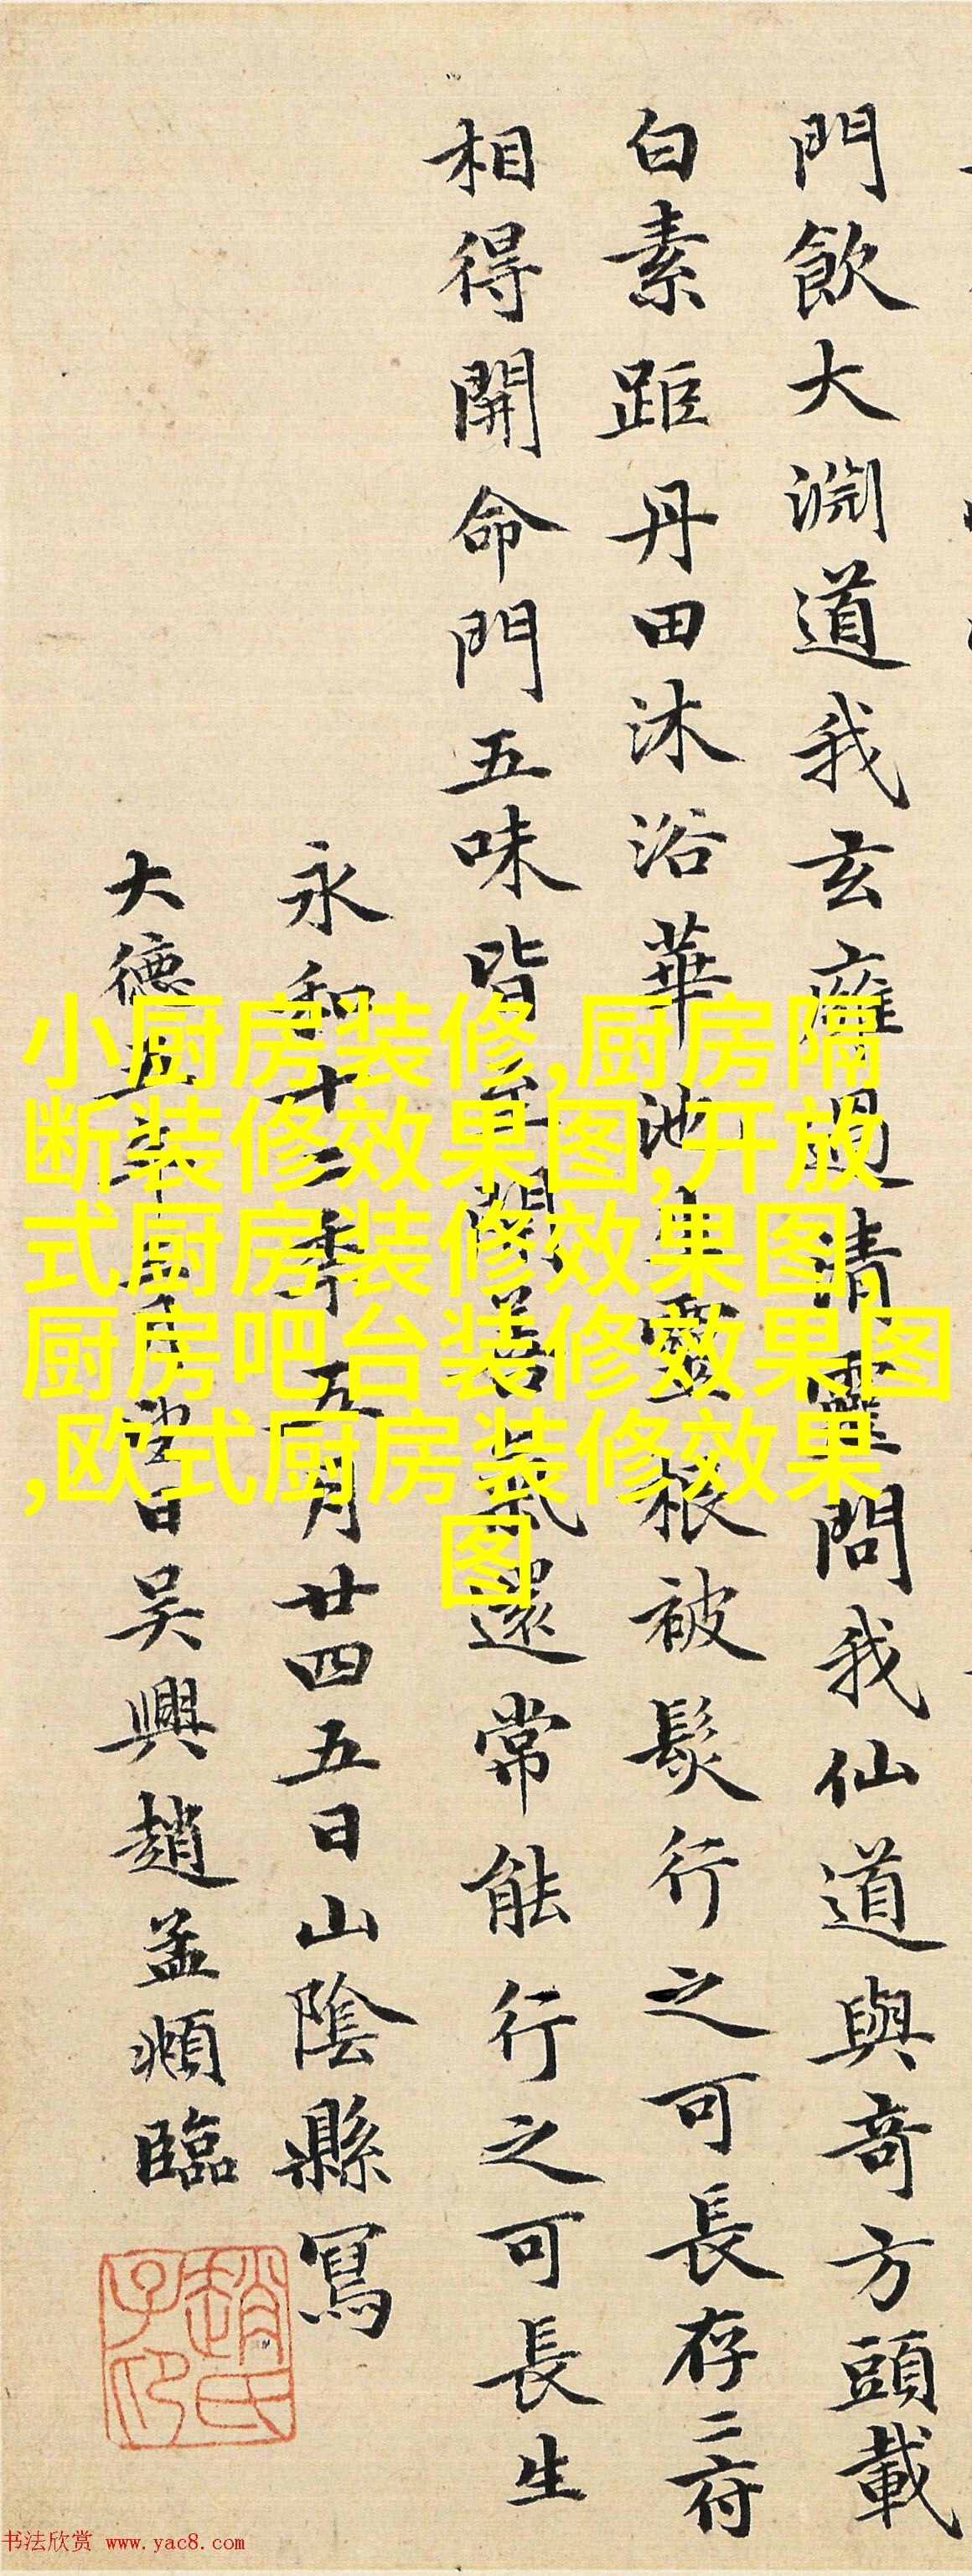 門飲大淵道我玄癰過清靈問我仙道與奇方頭載
白素距丹田沐浴華池生靈根被髮行之可長存二府
相得開命門五味皆至開善氣還常能行之可長生
永和十二年五月廿四五日山陰縣寫
大德五年五月望日吳興趙孟頫臨
趙氏子昂
小厨房装修,厨房隔
断装修效果图,开放
式厨房装修效果图,
厨房吧台装修效果图
,欧式厨房装修效果
图
书法欣赏 www.yac8.com